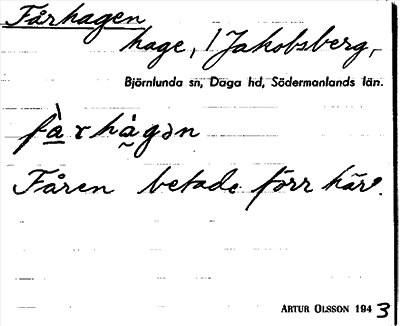 Fårhagen
hage, / Jakobsberg,
Björnlunda sn, Daga hd, Södermanlands län.
fà̲rhå̰gən
Fåren betade förr här.
ARTUR OLSSON 1943